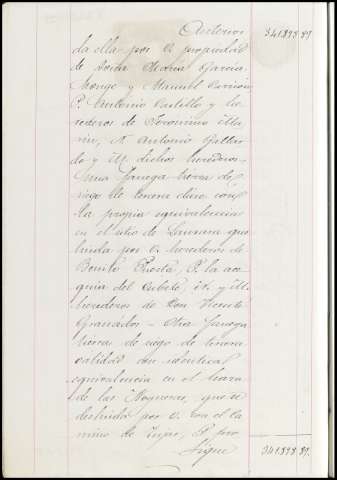 Anterior 341898 89
da ella por O. propiedad
de Doña María García
Monge y Manuel
P. Antonio Castillo y he
rederos de Jeronimo Illa
N. Antonio
do y M. dichos herederos
Una fanega tierra de
riego de tercera clase con
la propia equivalencia
en el sitio de que
linda por O. herederos de
Benito Puerta, P. la ace
quia del Cubete, N. y M.
herederos de Don Vicente
Granados - Otra fanega
tierra de riego de tercera
calidad con identica
equivalencia en el
de las Nogueras, que se
deslinda por O. con el ca
mino de P.
Sigue 341898 89.